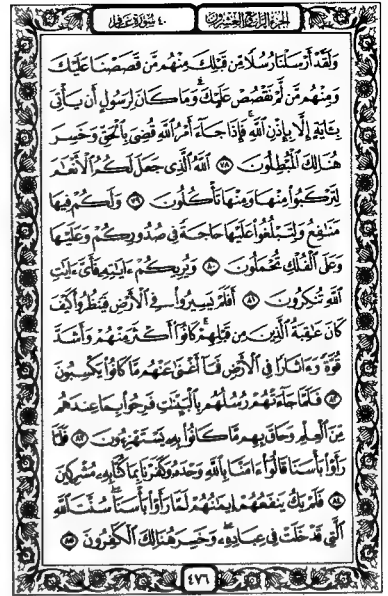 الجزء الرابع والعشرون
٤٠ سورة غافر
وَلَقَدْ أَرْسَلْنَا رُسُلًا مِّن قَبْلِكَ مِنْهُم مَّن قَصَصْنَا عَلَيْكَ
وَمِنْهُم مَّن لَّمْ نَقْصُصْ عَلَيْكَ ۗ وَمَا كَانَ لِرَسُولٍ أَن يَأْتِيَ
بِـَٔايَةٍ إِلَّا بِإِذْنِ اللَّهِ ۚ فَإِذَا جَاءَ أَمْرُ اللَّهِ قُضِيَ بِالْحَقِّ وَخَسِرَ
هُنَالِكَ الْمُبْطِلُونَ ٧٨ اللَّهُ الَّذِي جَعَلَ لَكُمُ الْأَنْعَٰمَ
لِتَرْكَبُوا مِنْهَا وَمِنْهَا تَأْكُلُونَ ٧٩ وَلَكُمْ فِيهَا
مَنَٰفِعُ وَلِتَبْلُغُوا عَلَيْهَا حَاجَةً فِي صُدُورِكُمْ وَعَلَيْهَا
وَعَلَى الْفُلْكِ تُحْمَلُونَ ٨٠ وَيُرِيكُمْ ءَايَٰتِهِ فَأَيَّ ءَايَٰتِ
اللَّهِ تُنكِرُونَ ٨١ أَفَلَمْ يَسِيرُوا فِي الْأَرْضِ فَيَنظُرُوا كَيْفَ
كَانَ عَٰقِبَةُ الَّذِينَ مِن قَبْلِهِمْ ۚ كَانُوا أَكْثَرَ مِنْهُمْ وَأَشَدَّ
قُوَّةً وَءَاثَارًا فِي الْأَرْضِ فَمَا أَغْنَىٰ عَنْهُم مَّا كَانُوا يَكْسِبُونَ
٨٢ فَلَمَّا جَاءَتْهُمْ رُسُلُهُم بِالْبَيِّنَٰتِ فَرِحُوا بِمَا عِندَهُم
مِّنَ الْعِلْمِ وَحَاقَ بِهِم مَّا كَانُوا بِهِ يَسْتَهْزِءُونَ ٨٣ فَلَمَّا
رَأَوْا بَأْسَنَا قَالُوا ءَامَنَّا بِاللَّهِ وَحْدَهُ وَكَفَرْنَا بِمَا كُنَّا بِهِ مُشْرِكِينَ
٨٤ فَلَمْ يَكُ يَنفَعُهُمْ إِيمَٰنُهُمْ لَمَّا رَأَوْا بَأْسَنَا ۖ سُنَّتَ اللَّهِ
الَّتِي قَدْ خَلَتْ فِي عِبَادِهِ ۖ وَخَسِرَ هُنَالِكَ الْكَٰفِرُونَ ٨٥
٤٧٦